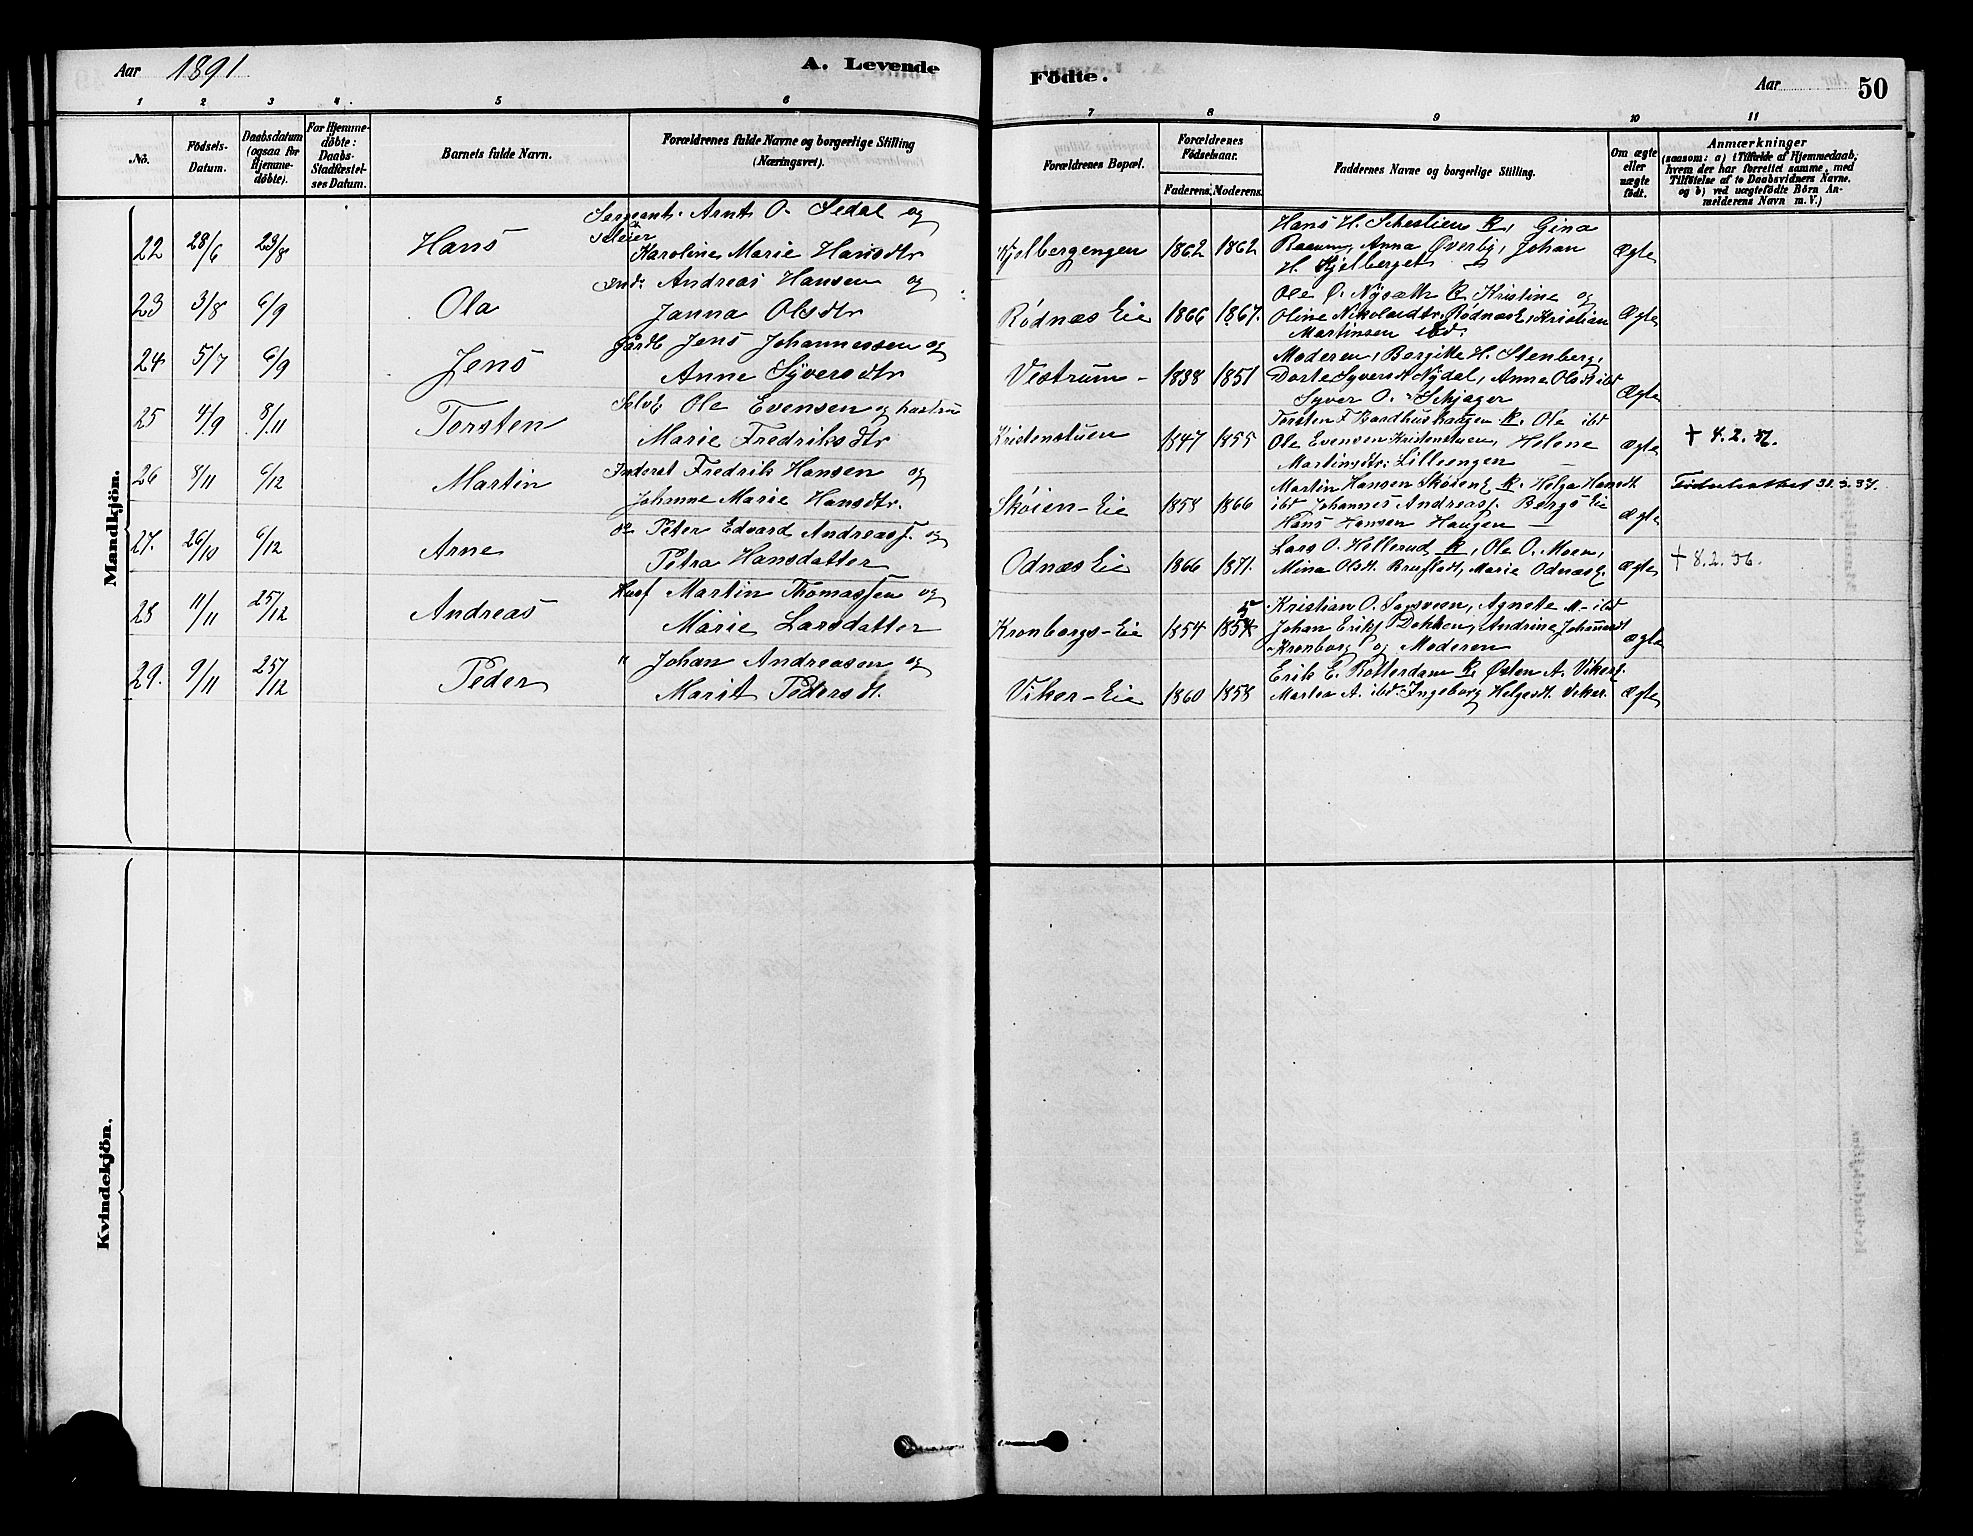 Aar 1891
A. Levende
Födte.
Aar
50
1 2 3 4. 5 6 7 8 9 10 11
No.
Födsels-
Datum.
Daabsdatum
(ogsaa for
Hjemme-
döbte).
For Hjemme-
döbte:
Daabs-
Stadfæstel-
ses Datum.
Barnets fulde Navn.
Forældrenes fulde Navne og borgerlige Stilling
(Næringsvei).
Forældrenes Bopæl.
Forældrenes
Födselsaar.
Faderens.
Moderens.
Faddernes Navne og borgerlige Stilling.
Om ægte
eller
uægte
födt.
Anmærkninger
(saasom: a) i Tilfælde af Hjemmedaab,
hvem der har forrettet samme, med
Tilföielse af to Daabsvidners Navne,
og b) ved uægtefödte Börn An-
melderens Navn m. V.)
Mandkjön.
22 28/6 23/8 Hans
Sergeant Arnt O. Sedal og
Karoline Marie Hansdtr
Kjølbergengen 1862 1862
Hans H. k, Gina
Raaum, Anna Øverby, Johan
H. Kjølberget
Ægte
23 3/8 6/9 Ola
Ind. Andreas Hansen og
Janna Olsdtr
Rødnæs Eie 1866 1867.
Ole O. k Kristine og
Oline Nikolaidtr. Rødnæs E, Kristian
Martinsen ibd.
Ægte
24 5/7 6/9 Jens
Gårdb Jens Johannessen og
Anne Syversdtr
Vestrum - 1838 1851
Moderen, Borgitte H. Stenberg,
Dorte Syversdt Nydal, Anne Olsdt ibd
Syver O. Schjager
Ægte
25 4/9 8/11 Torsten
Selve Ole Evensen og hustru
Marie Fredriksdtr
Kristenstuen 1847 1855
Torsten F k. Ole ibd
Ole Evensen Kristenstuen, Helene
Martinsdtr. Lillesengen
Ægte
† 4.2.56.
26 8/11 6/12 Martin
Inderst Fredrik Hansen og
Johanne Marie Hansdtr.
Skøien-Eie 1858 1866
Martin Hansen Skøien E k. Helga Hansdt
ibd Johannes Andreasf. Bergs Eie
Hans Hansen Haugen
Ægte
Fødselsattest 31.3.37.
27. 26/10 6/12 Arne
do Peter Edvard Andreasf. og
Petra Hansdatter
Odnæs Eie 1866 1871.
Lars O. Hellerud k, Ole O. Moen,
Mina Olsdt. Bruflat, Marie Odnæs E.
Ægte
† 8.2.56.
28 11/11 25/12 Andreas
Husf Martin Thomassen og
Marie Larsdatter
Kronborgs-Eie 1854 1854 5
Kristian O. Sagsveen, Agnete M- ibd
Johan Eriks Dokken, Andrine Johansdt
Kronborg og Moderen
Ægte
29. 9/11 25/12 Peder
" Johan Andreasen og
Marit Pedersdt.
Viker-Eie 1860 1858
Erik E. Rotterdam k, Østen A. Vikers.
Martea A. ibd. Ingeborg Helgesdt. Viker.
Ægte
Kvindekjön.